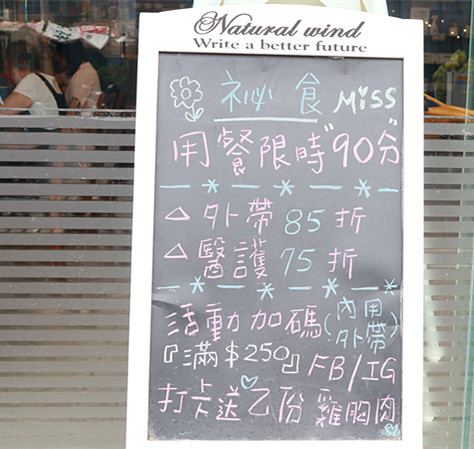 Natural wind
Write a better future
祕食 MiSS
用餐限時"90分"
△外帶 85 折
△醫護 75 折
活動加碼(內用 外帶)
『滿$250』FB/IG
打卡送乙份 雞胸肉